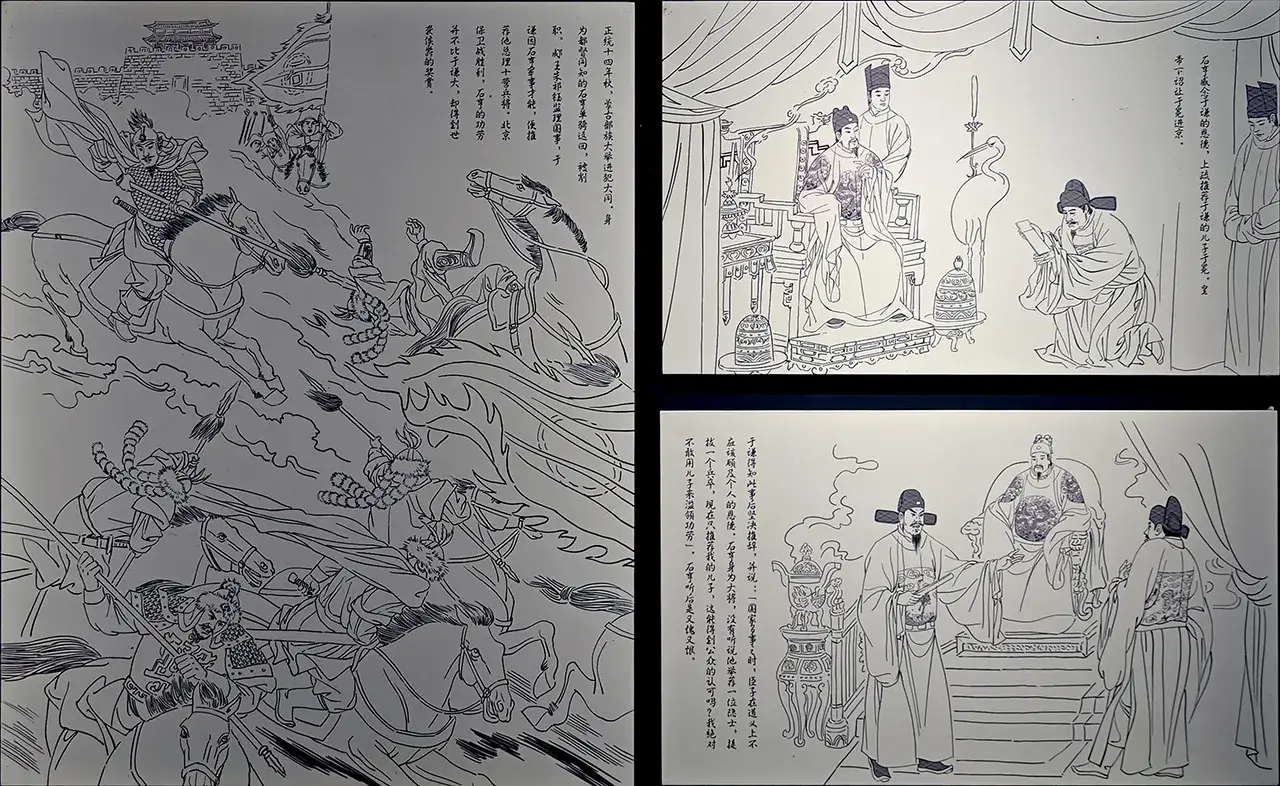 正统十四年秋，蒙古部族大举进犯大同。身
为都督同知的石亨单骑逃回，被削
职。郕王朱祁钰监理国事，于
谦因石亨军事才能，便推
荐他总理十营兵将。北京
保卫战胜利，石亨的功劳
并不比于谦大，却得到世
袭侯爵的奖赏。
石亨感念于谦的恩德，上疏推荐于谦的儿子于冕。皇
帝下诏让于冕进京。
于谦得知此事后坚决推辞，并说：“国家多事之时，臣子在道义上不
应该顾及个人的恩德。石亨身为大将，没有听说他举荐一位隐士，提
拔一个兵卒，现在只推荐我的儿子，这能得到公众的认可吗？我绝对
不敢用儿子来滥领功劳”。石亨听后是又愧又恨。